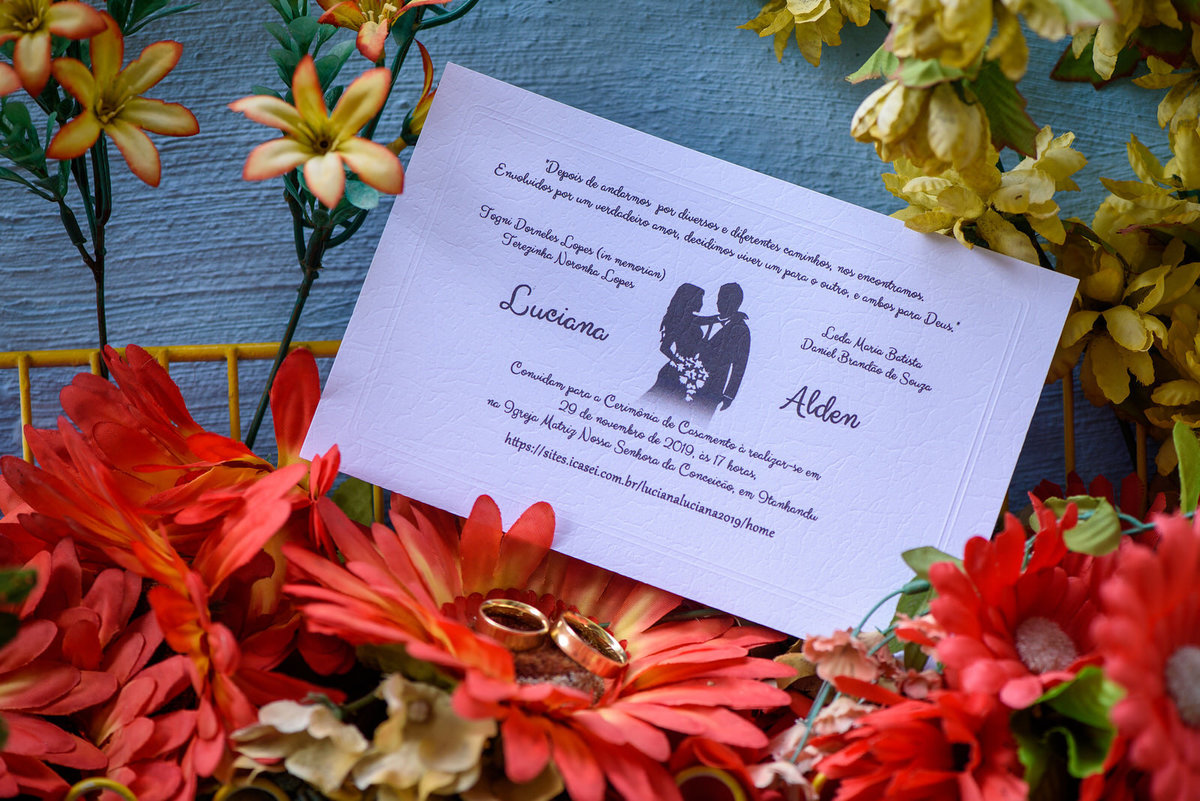 "Depois de andarmos por diversos e diferentes caminhos, nos encontramos.
Envolvidos por um verdadeiro amor, decidimos viver um para o outro, e ambos para Deus."
Togni Dorneles Lopes (in memorian)
Terezinha Noronha Lopes
Leda Maria Batista
Daniel Brandão de Souza
Luciana
Alden
Convidam para a Cerimônia de Casamento à realizar-se em
29 de novembro de 2019, às 17 horas,
na Igreja Matriz Nossa Senhora da Conceição, em Itanhandu
https://sites.icasei.com.br/lucianaluciana2019/home